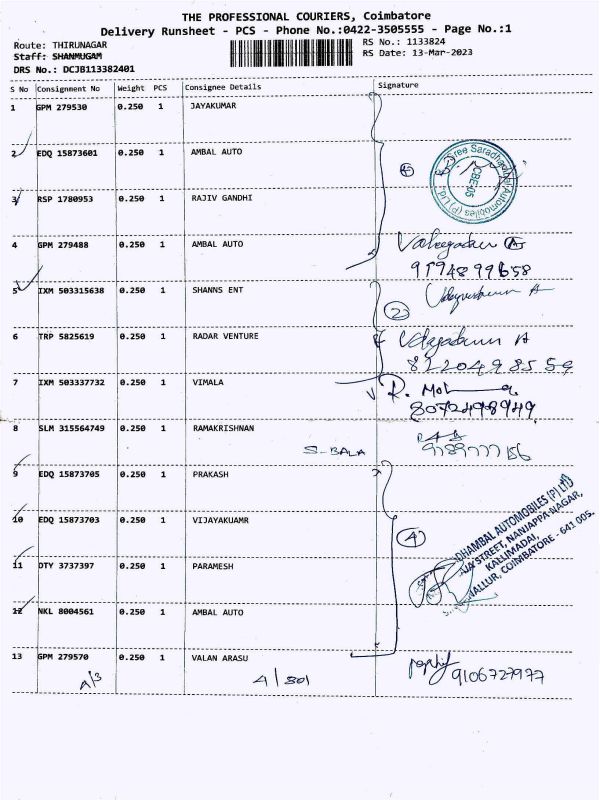 THE PROFESSIONAL COURIERS, Coimbatore
Delivery Runsheet - PCS - Phone No.:0422-3505555 - Page No.:1
Route: THIRUNAGAR
RS No.: 1133824
Staff: SHANMUGAM
RS Date: 13-Mar-2023
DRS No.: DCJB113382401
S No Consignment No Weight PCS Consignee Details Signature
1 GPM 279530 0.250 1 JAYAKUMAR
2 EDQ 15873601 0.250 1 AMBAL AUTO
3 RSP 1780953 0.250 1 RAJIV GANDHI
4 GPM 279488 0.250 1 AMBAL AUTO
9194899658
5 IXM 503315638 0.250 1 SHANNS ENT
2
6 TRP 5825619 0.250 1 RADAR VENTURE
8220498559
7 IXM 503337732 0.250 1 VIMALA
R. Moh
8072498949
8 SLM 315564749 0.250 1 RAMAKRISHNAN
S-BALA
9789777156
9 EDQ 15873705 0.250 1 PRAKASH
10 EDQ 15873703 0.250 1 VIJAYAKUAMR
4
DHAMBAL AUTOMOBILES (P) LTD
STREET, NANJAPPA NAGAR,
KALLIMADAI,
NALLUR, COIMBATORE - 641 005.
11 DTY 3737397 0.250 1 PARAMESH
12 NKL 8004561 0.250 1 AMBAL AUTO
13 GPM 279570 0.250 1 VALAN ARASU
A/3
4/801
9106727977